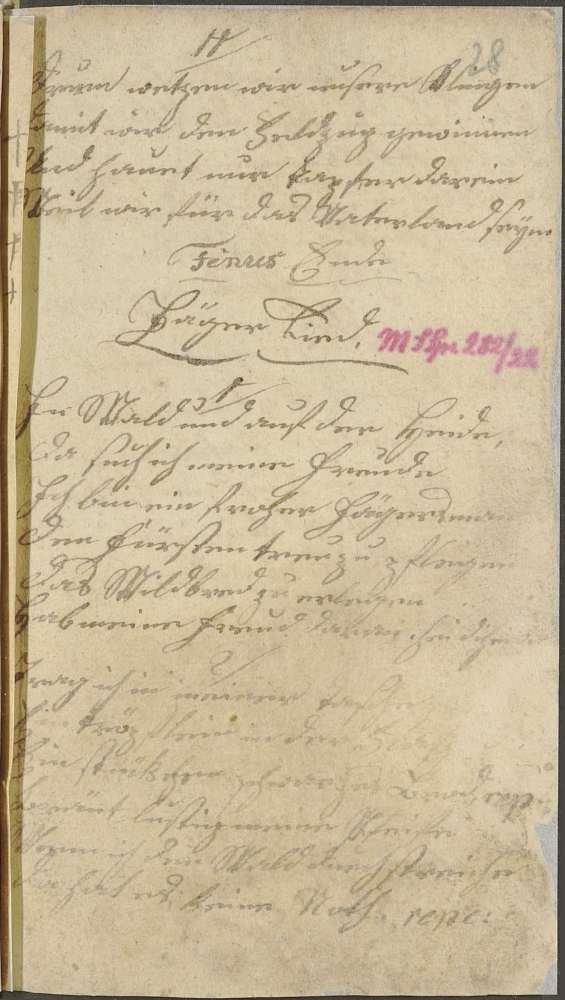 14
28
Drum wetzen wir unsere Klingen
Damit wir den Feldzug gewinnen
Und hauet nur tapfer darein
Weil wir für das Vaterland seyn
Finus Ende
Jäger Lied.
MSSpr. 282/22
1
Im Wald und auf der Heide,
Da such ich meine Freude
Ich bin ein froher Jägersman
Den Fürsten treu zu pflegen
Das Wildbred zu erlegen
Hab meine Freud daran
2
Trag ich in meiner Tasche
Ein Tröpflein in der Flasch
Ein stückchen schwarzes Brod, rep:
Brennt lustig meine Pfeife
Wenn ich den Wald durchstreiche
Da hat es keine Noth. repe: